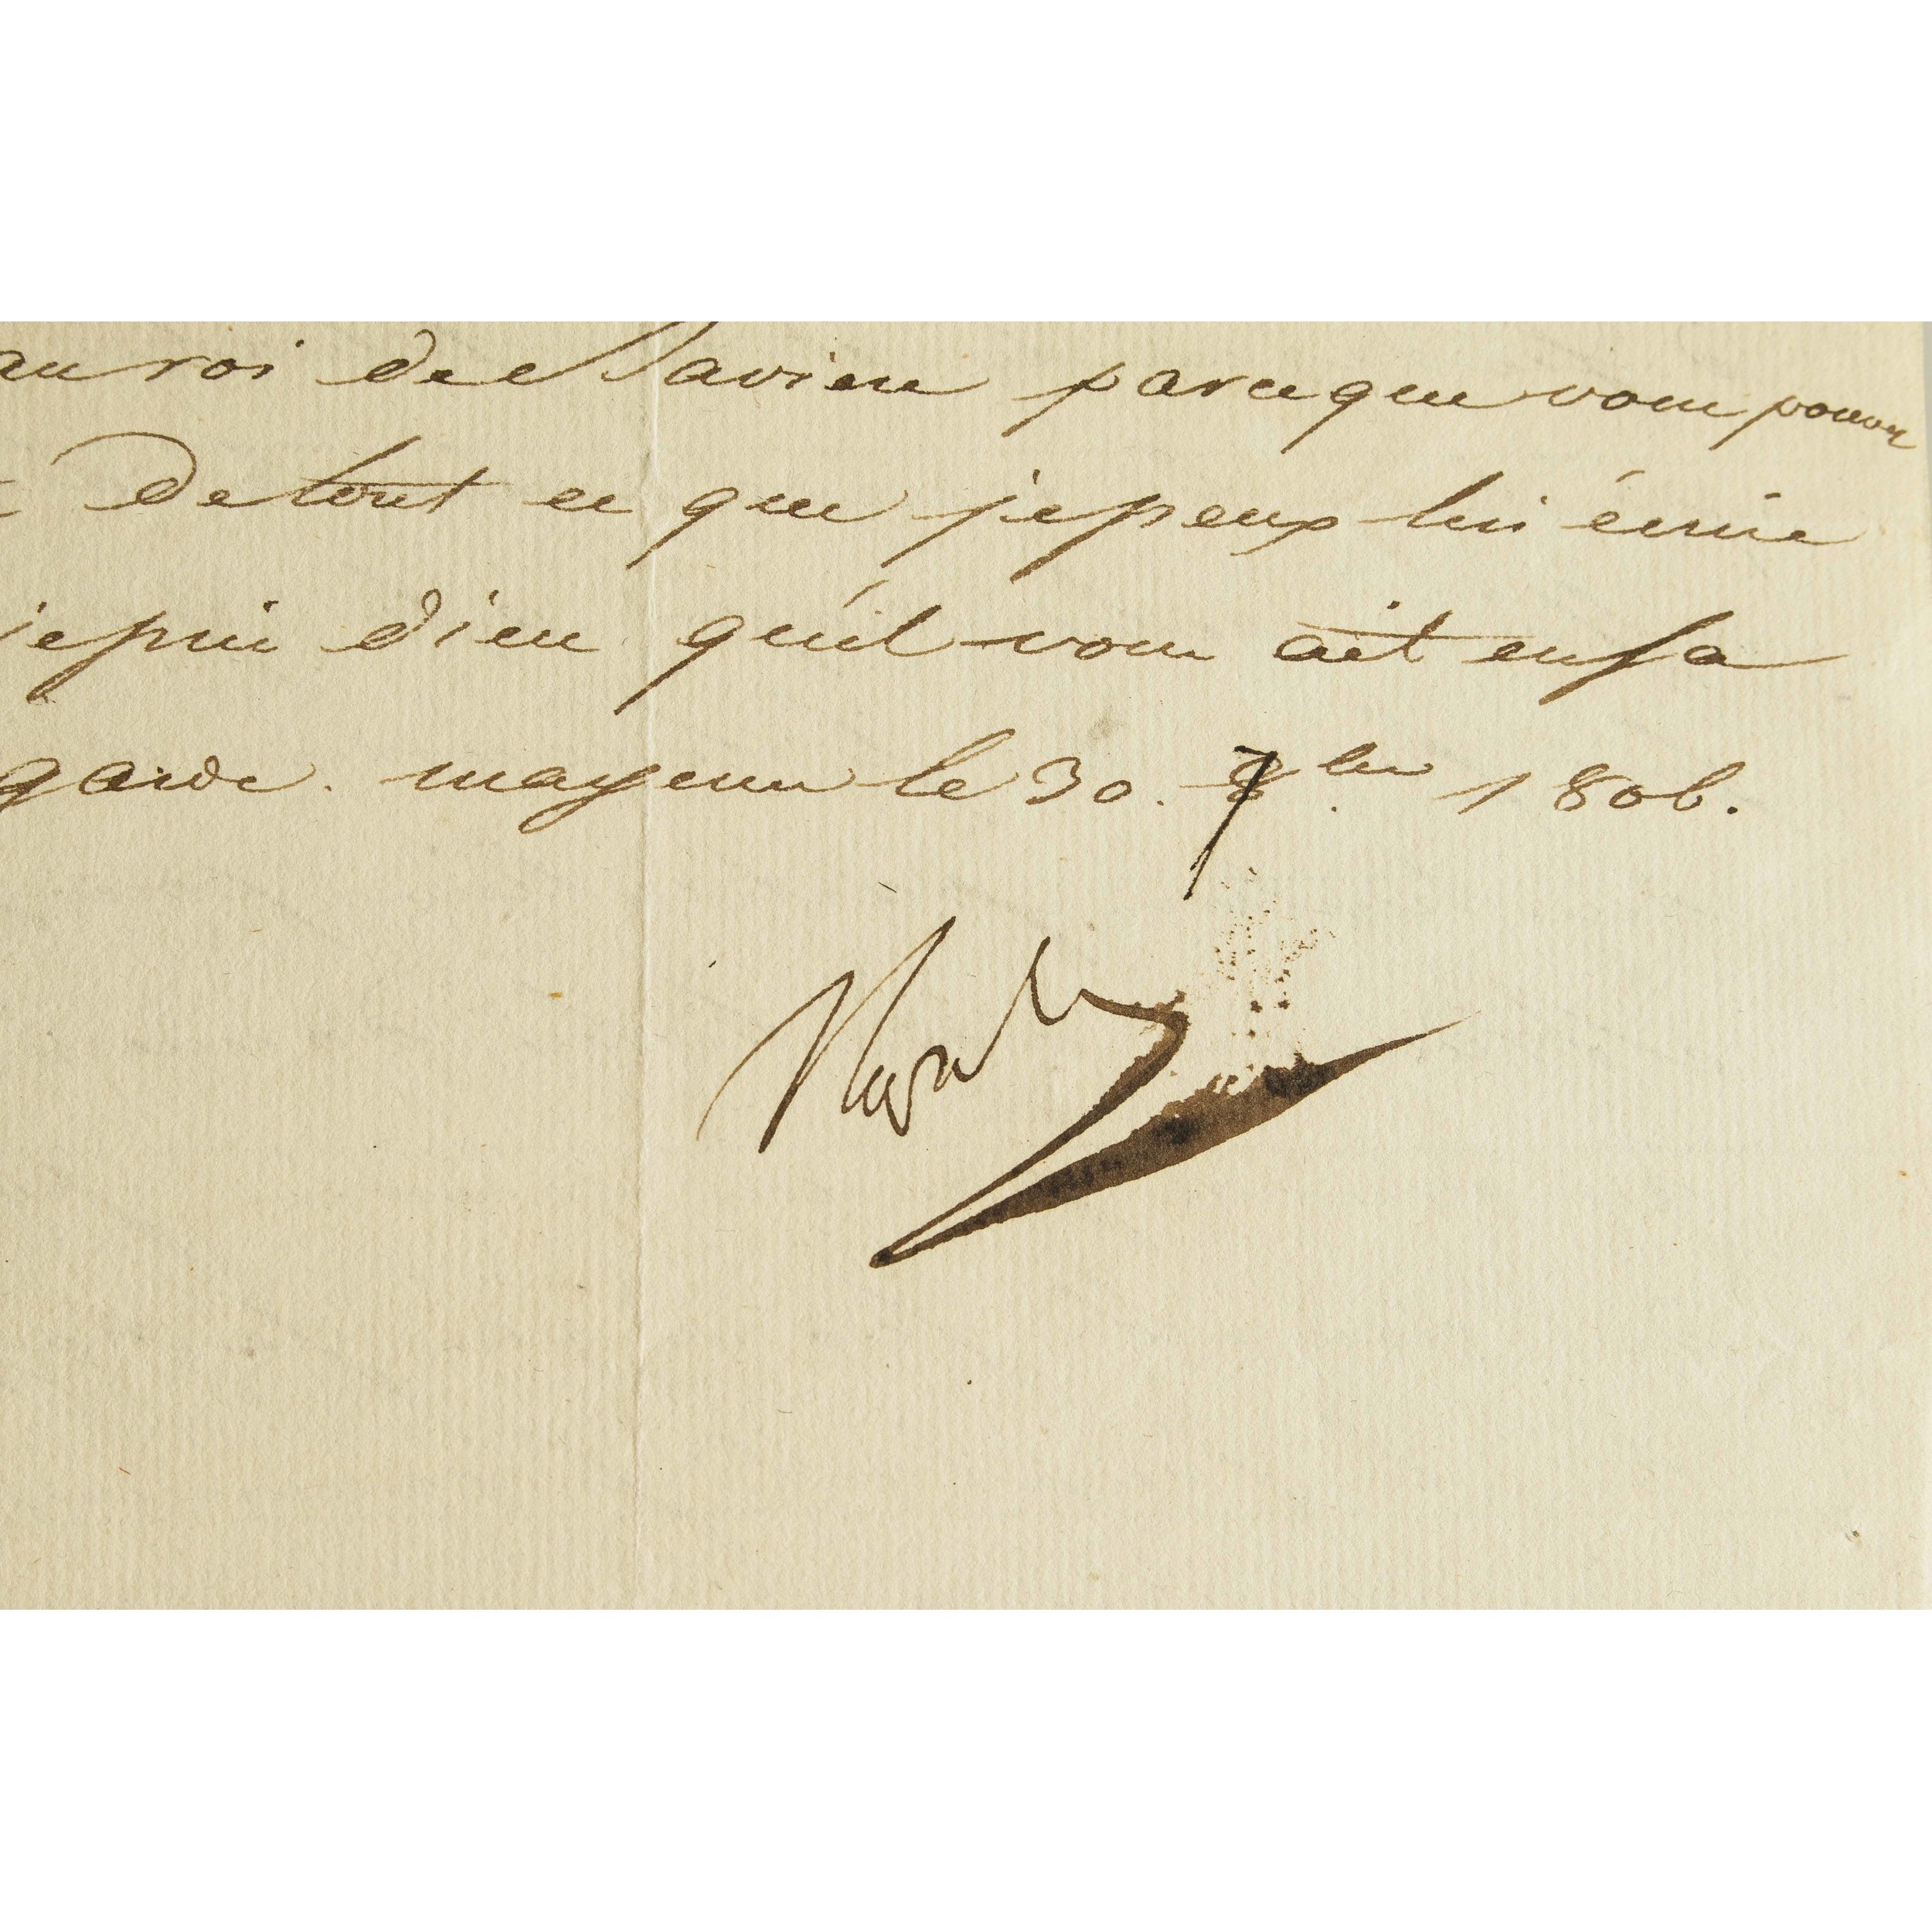 au roi de Bavière parceque vous pouvez
de tout ce que je peux lui écrire
je prie dieu qu'il vous ait en sa
garde. mayence le 30. 7bre 1806.
Napole